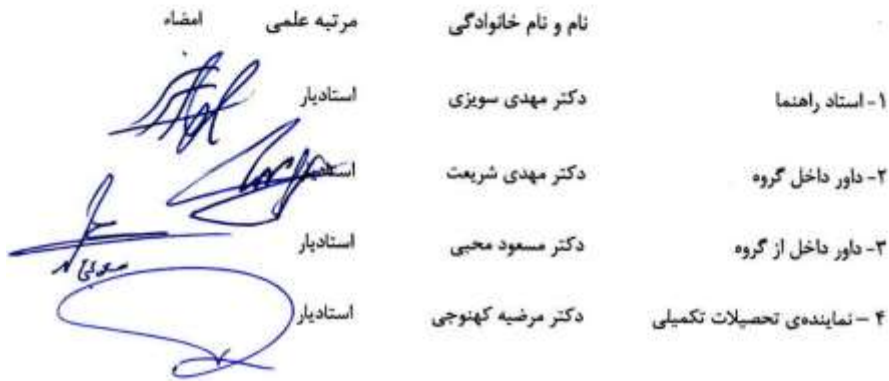 نام و نام خانوادگی مرتبه علمی امضاء
۱- استاد راهنما دکتر مهدی سویزی استادیار
۲- داور داخل گروه دکتر مهدی شریعت استادیار
۳- داور داخل از گروه دکتر مسعود محبی استادیار
۴ – نماینده‌ی تحصیلات تکمیلی دکتر مرضیه کهنوجی استادیار